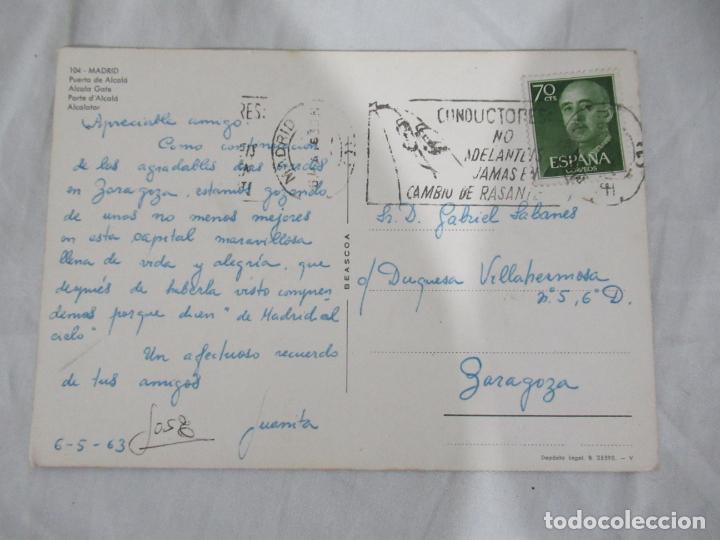 104 - MADRID
Puerta de Alcalá
Alcala Gate
Porte d'Alcalá
Alcalator
Apreciable amigo:
Como compensación
de los agradables días pasados
en Zaragoza, estamos gozando
de unos no menos mejores
en esta capital maravillosa
llena de vida y alegría, que
después de haberla visto compren-
demos porque dicen "de Madrid al
cielo"
Un afectuoso recuerdo
de tus amigos
José Juanita
6-5-63
BEASCOA
RES:
MADRID
CONDUCTORES:
NO
ADELANTEIS
JAMAS E
CAMBIO DE RASAN
70
CTS
ESPAÑA
CORREOS
Sr. D. Gabriel Sabanés
c/ Duquesa Villahermosa
nº 5, 6º D.
Zaragoza
Depósito Legal. B. 25595. - V
todocoleccion
todocoleccion.net